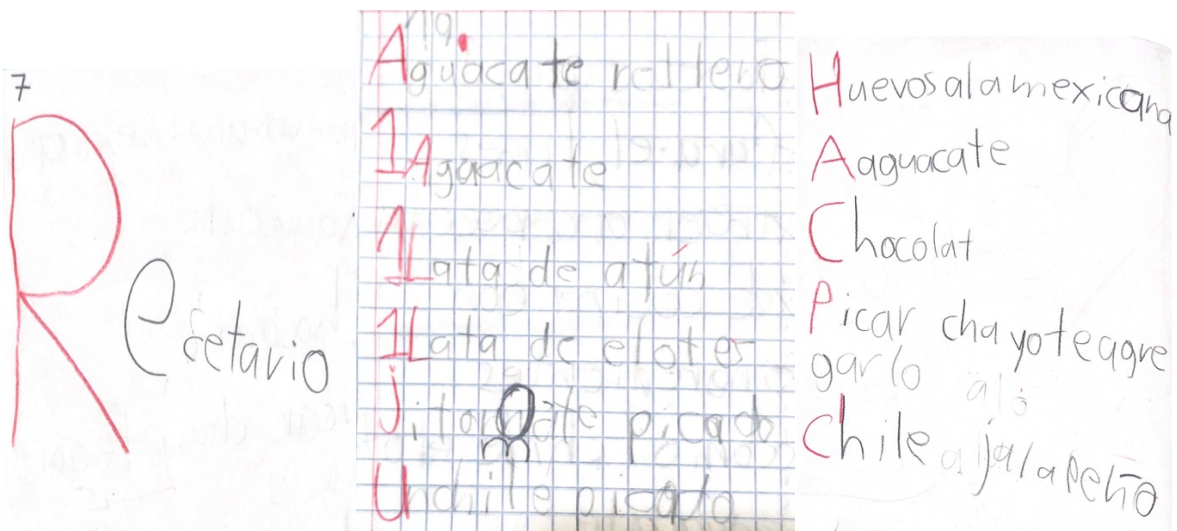 7
Resetario
Aguacate relleno
1 Aguacate
1 Lata de atún
1 Lata de elotes
Jitomate picado
Un chile picado
Huevosalamexicana
Aaguacate
Chocolat
Picar chayoteagre
garlo
Chile jalapeño